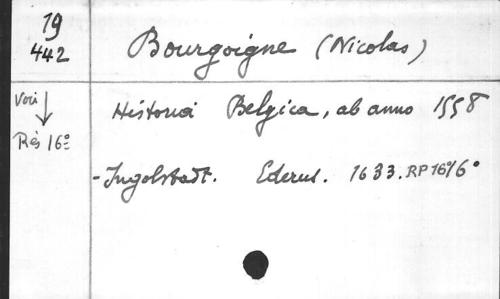 19
442
Bourgoigne (Nicolas)
Voir
Rés 16º
Historia Belgica, ab anno 1558
- Ingolstadt. Ederus. 1633. RP 16/6º